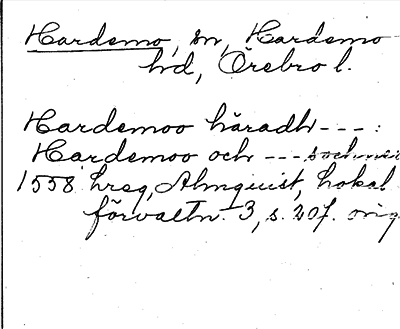 Hardemo, sn, Hardemo
hd, Örebro l.
Hardemoo häradh - - - :
Hardemoo och - - - sochner
1558 hreg, Almquist, Lokal
förvaltn. 3, s. 207. orig